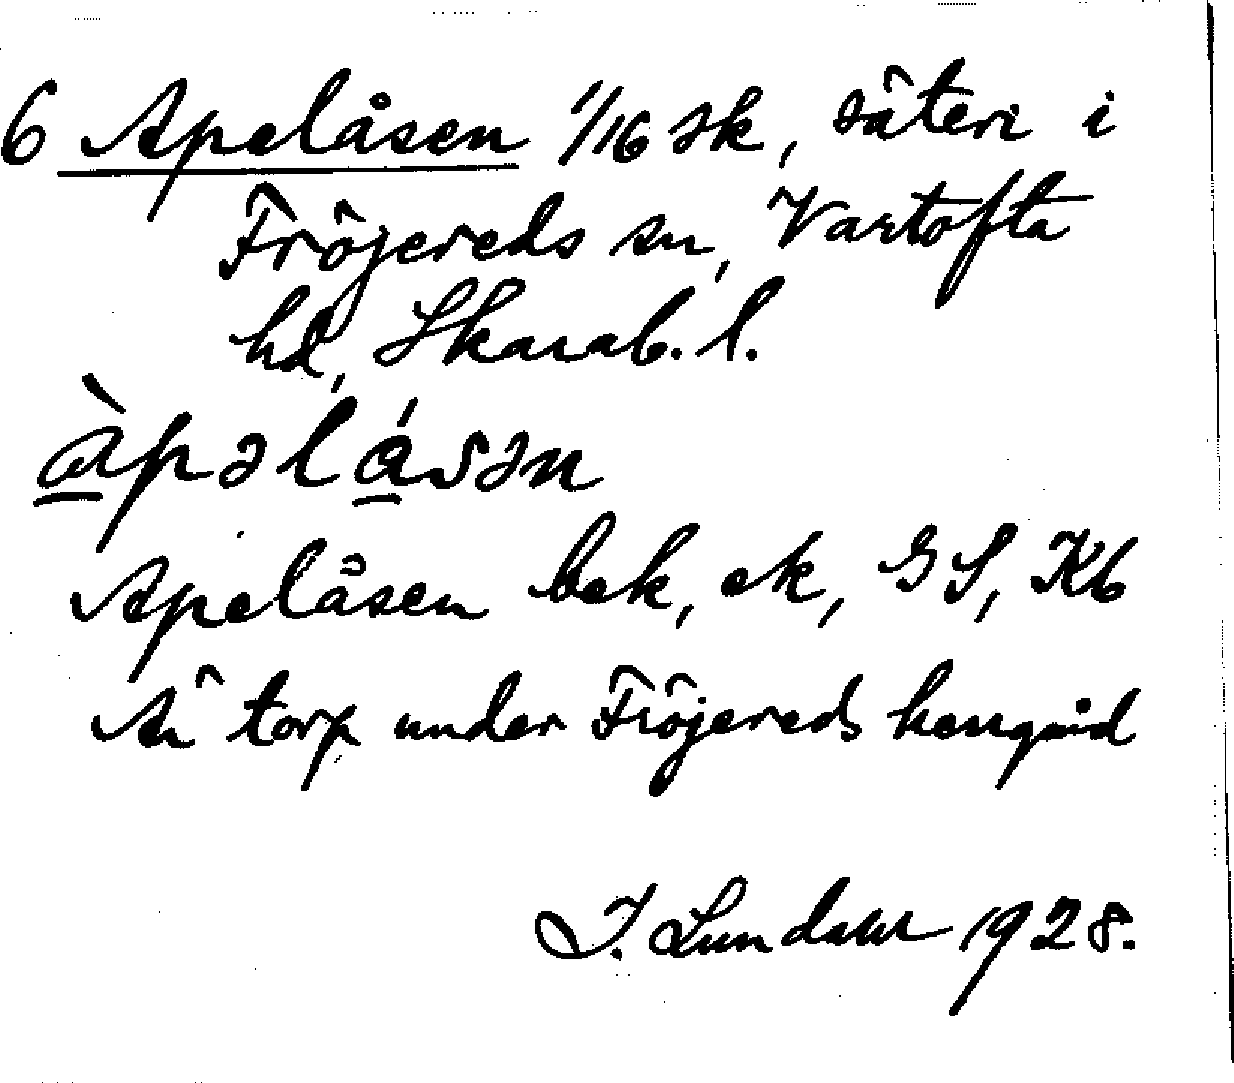 6 Apelåsen 1/16 sk, säteri i
Fröjereds sn, Vartofta
hd, Skarab. l.
àpəlásən
Apelåsen bek, ek, GS, Kb
Än torp under Fröjereds herrgård
I. Lundahl 1928.